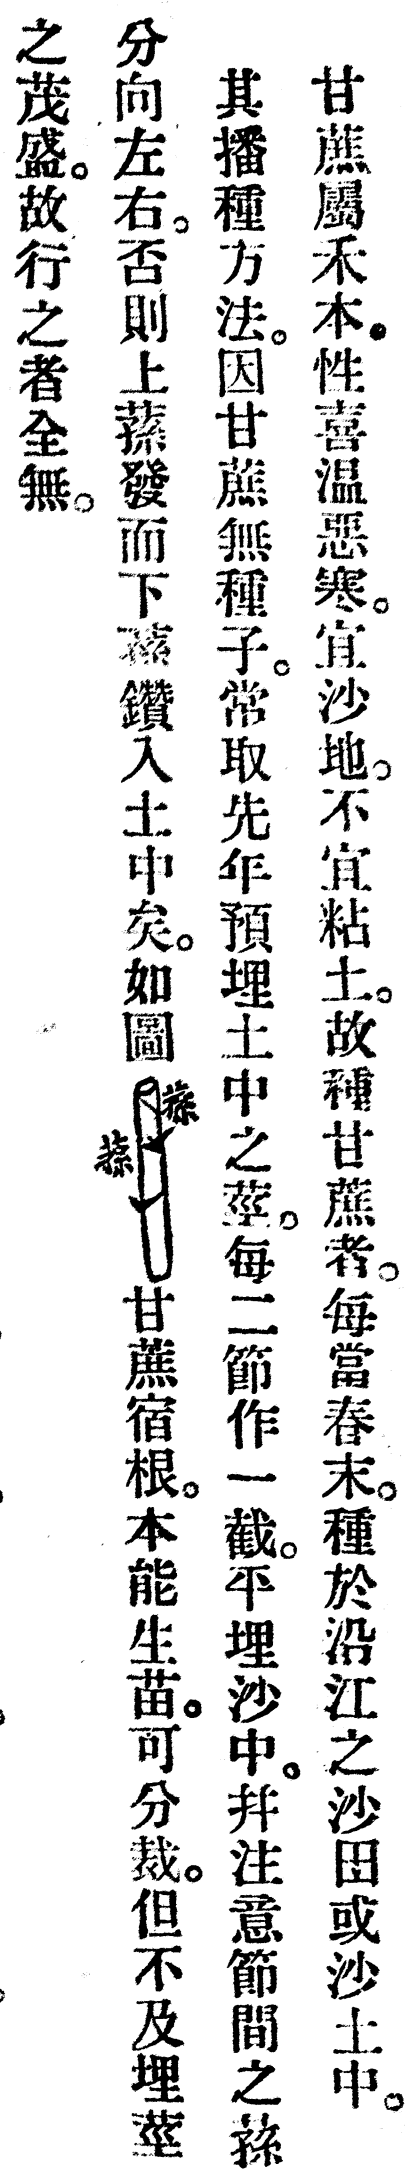 甘蔗屬禾本。性喜温惡寒。宜沙地。不宜粘土。故種甘蔗者。每當春末。種於沿江之沙田或沙土中。
其播種方法。因甘蔗無種子。常取先年預埋土中之莖。每二節作一截。平埋沙中。幷注意節間之蓀
分向左右。否則上蓀發而下蓀鑽入土中矣。如圖
蓀
蓀
甘蔗宿根。本能生苗。可分栽。但不及埋莖
之茂盛。故行之者全無。